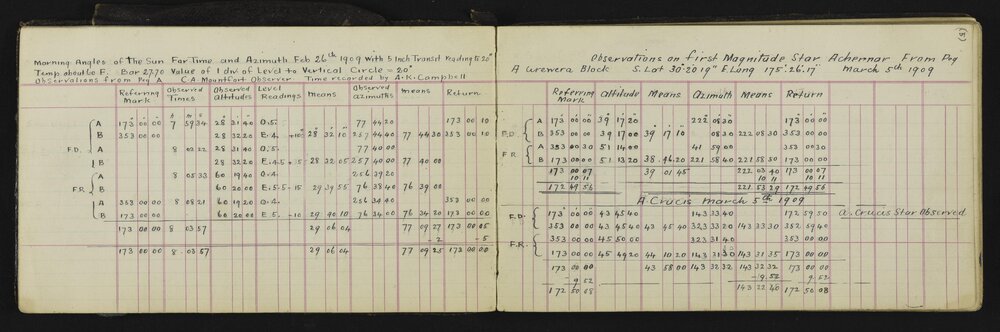 Morning Angles of The Sun For Time and Azimuth Feb 26th 1909 With 5 Inch Transit Reading to 20"
Temp about 60 F. Bar 27.70 Value of 1 div of Level to Vertical Circle = 20"
Observations from Peg A C.A. Mountfort Observer Time recorded by A.K. Campbell
Referring Mark Observed Times Observed Altitudes Level Readings Means Observed azimuths means Return
h m s
F.D. A 173 00 00 7 59 34 28 31 40 O.5. 77 44 20 173 00 10
B 353 00 00 28 32 20 E.4. +10 28 32 10 257 44 40 77 44 30 353 00 10
A 8 02 22 28 31 40 O.5. 77 40 00
B 28 32 20 E.4.5 +15 28 32 05 257 40 00 77 40 00
F.R. A 8 05 33 60 19 40 O.4. 256 39 20
B 60 20 00 E.5.5 -15 29 39 55 76 38 40 76 39 00
A 353 00 00 8 08 21 60 19 20 O.4. 256 34 40 353 00 00
B 173 00 00 60 20 00 E.5. -10 29 40 10 76 34 00 76 34 20 173 00 00
173 00 00 8 03 57 29 06 04 77 09 27 173 00 05
-2 -5
173 00 00 8 03 57 29 06 04 77 09 25 173 00 00
(8)
Observations on first Magnitude Star Achernar From Peg
A Urewera Block S. Lat 38° 20' 19" E. Long 175° 26' 17" March 5th 1909
Referring Mark Altitude Means Azimuth Means Return
F.D. A 173 00 00 39 17 20 222 08 30 173 00 00
B 353 00 00 39 17 00 39 17 10 08 30 222 08 30 353 00 00
F.R. A 353 00 30 51 14 00 41 59 00 353 00 30
B 173 00 00 51 13 20 38 46 20 221 58 40 221 58 50 173 00 00
173 00 07 39 01 45 222 03 40 173 00 07
10 11 10 11 10 11
172 49 56 221 53 29 172 49 56
A Crucis March 5th 1909
F.D. 173 00 00 43 45 40 143 33 40 172 59 50 α Crucis Star Observed
353 00 00 43 45 40 43 45 40 323 33 20 143 33 30 352 59 40
F.R. 353 00 00 45 50 00 323 31 40 353 00 00
173 00 00 45 49 20 44 10 20 143 31 30 143 31 35 173 00 00
173 00 00 43 58 00 143 32 32 143 32 32 173 00 00
-9 52 -9 52 9 52
172 50 08 143 22 40 172 50 08